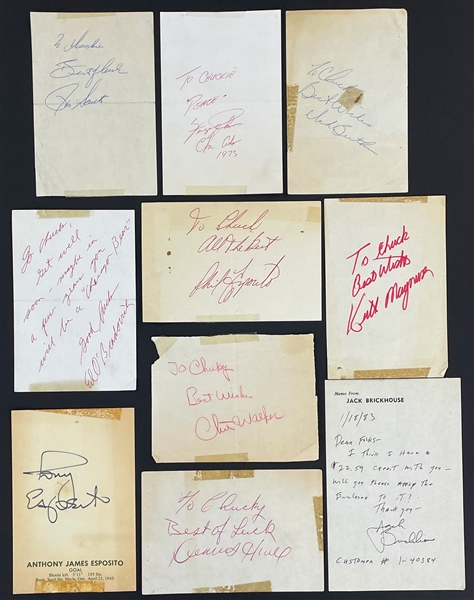 To Chuckie
Best of Luck
Ron Santo
TO CHUCKIE
"PEACE"
1973
To Chuck
Best Wishes
Dick Butkus
To Chuck,
Get well
soon - maybe in
a few years you
will be a "Chicago Bear"
Good Luck
Ed O'Bradovich
To Chuck
All the Best
Phil Esposito
TO Chuck
Best Wishes
Keith Magnuson
To Chuky
Best Wishes
Chet Walker
Memo From
JACK BRICKHOUSE
1/18/83
Dear Folks-
I think I have a
$22.59 credit with you-
will you please apply the
enclosed to it?
Thank you-
Jack
Brickhouse
Customer # 1-40384
Tony
Esposito
ANTHONY JAMES ESPOSITO
GOAL
Shoots left 5'11" 185 lbs
Born, Sault Ste. Marie, Ont., April 23, 1943
To Chucky
Best of Luck
Dennis Hull